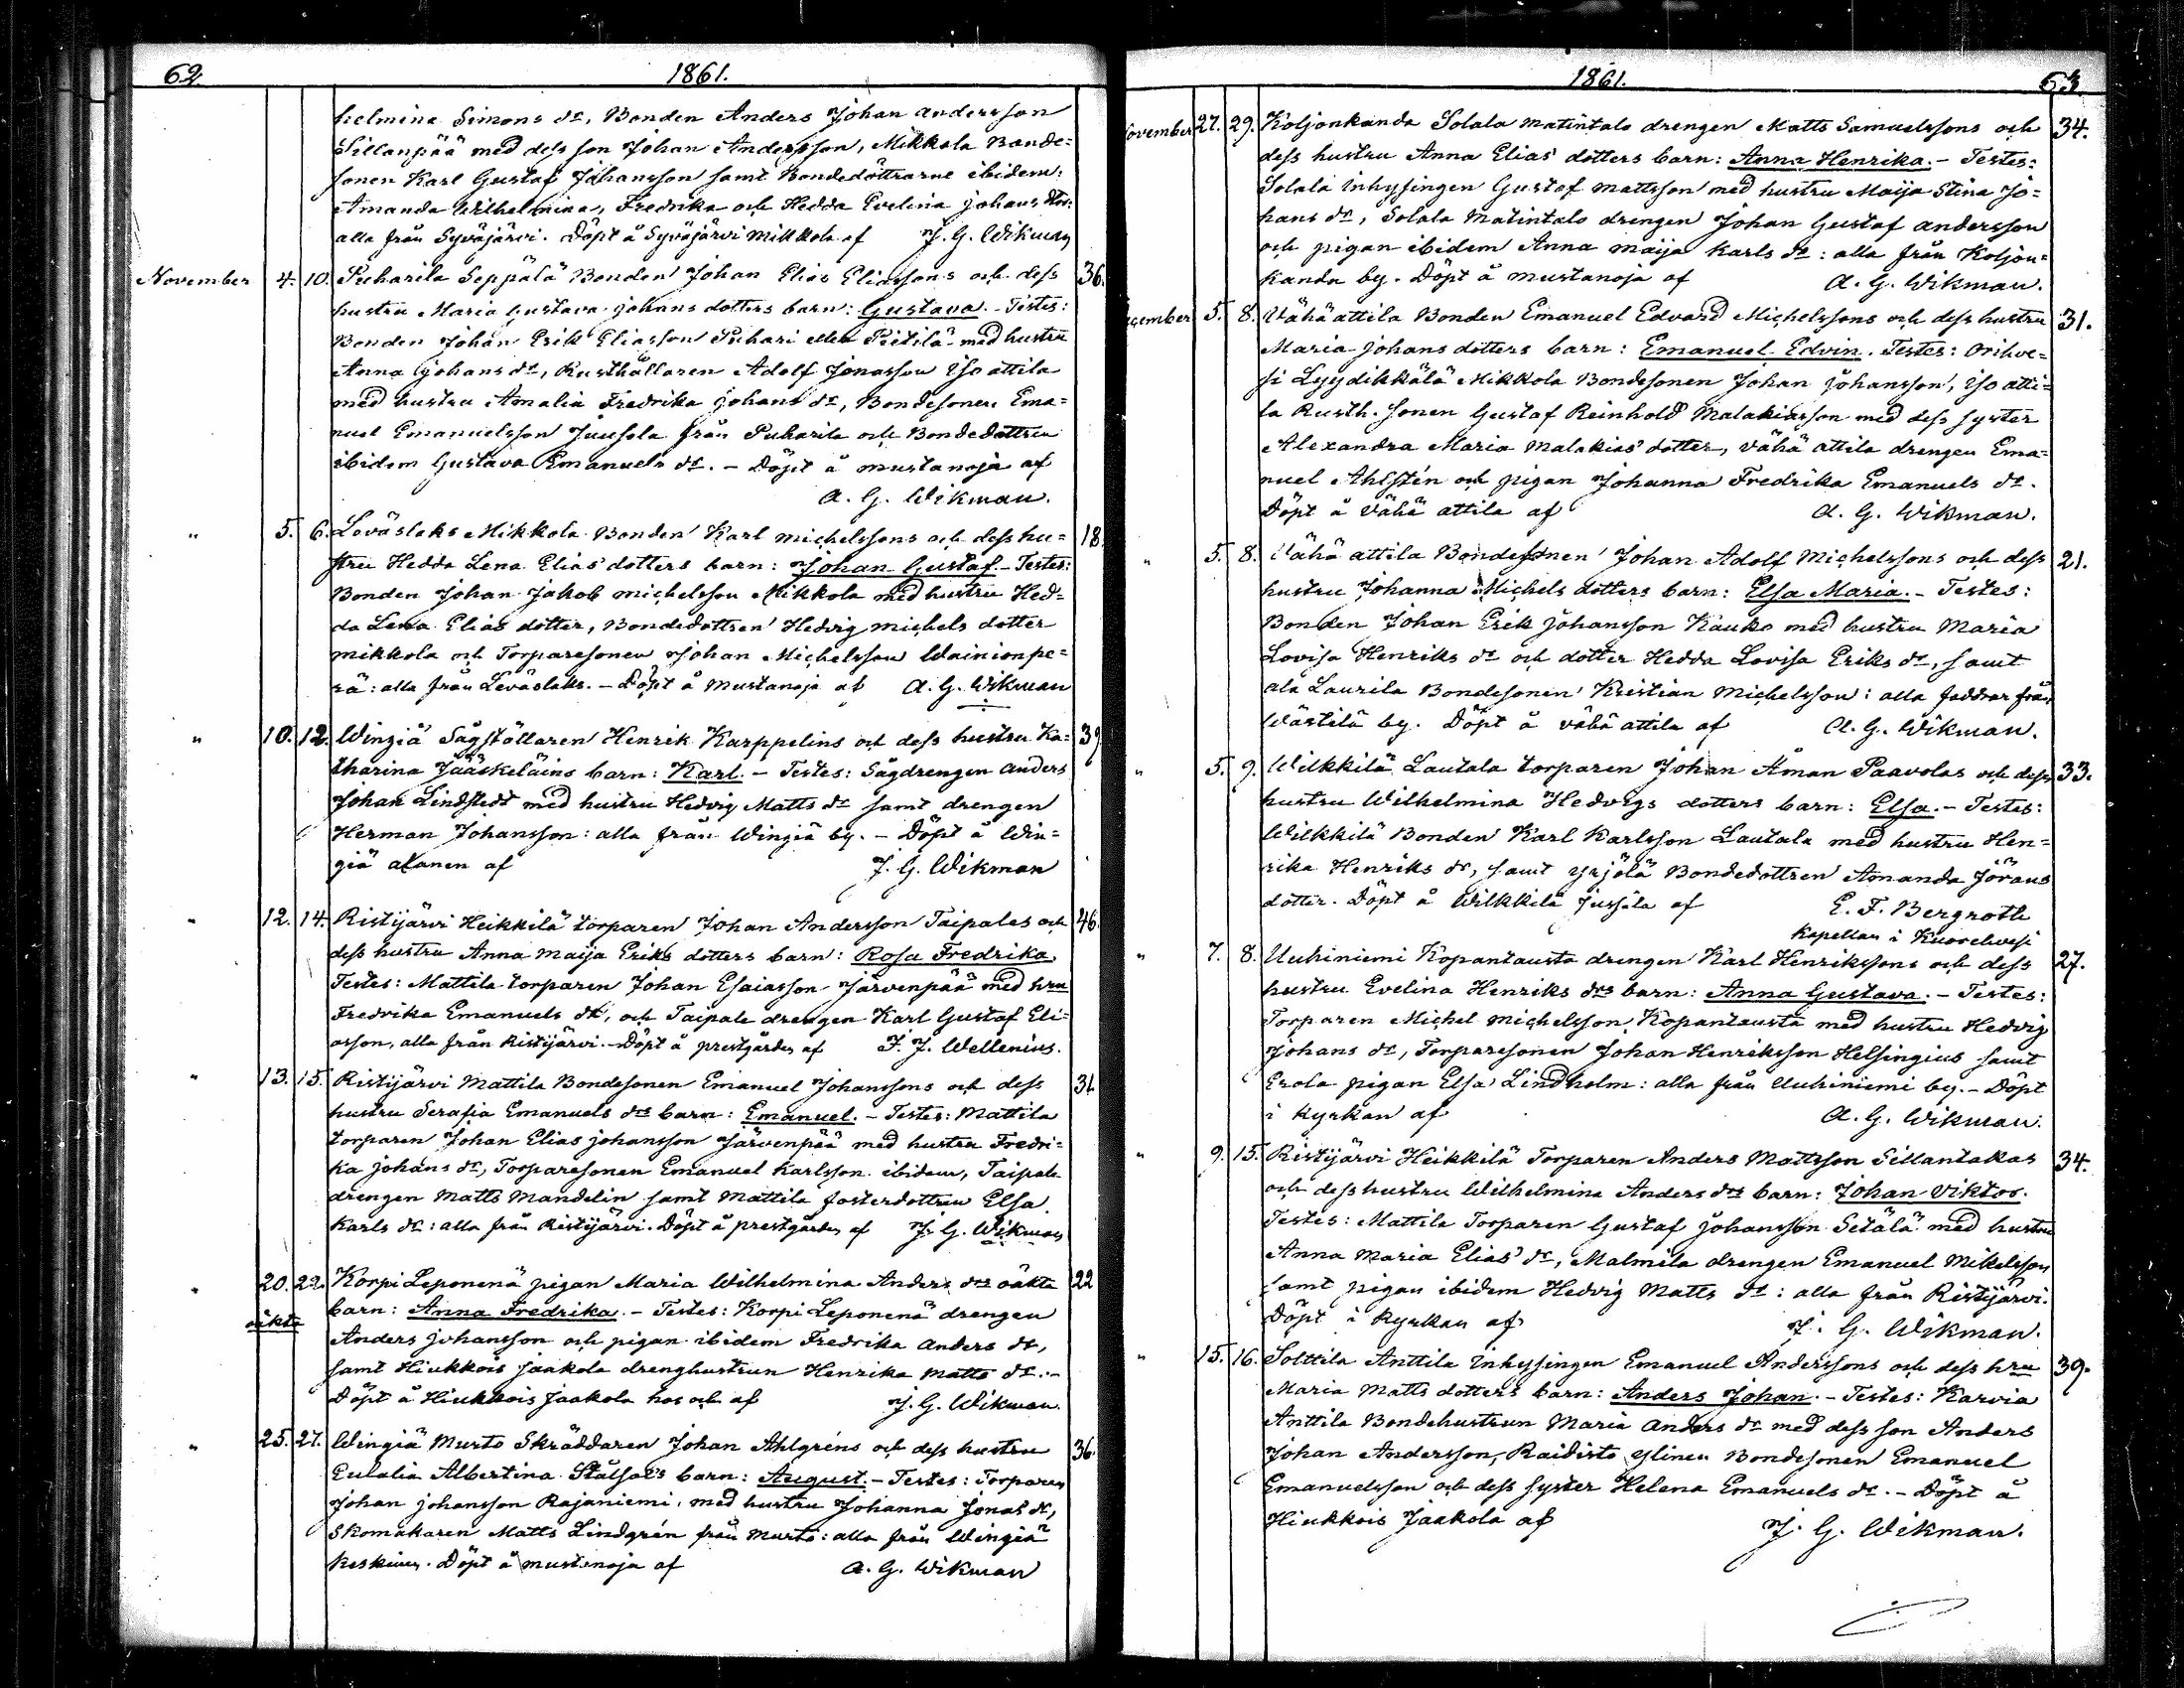 62. 1861.
helmina Simons dr, Bonden Anders Johan Andersson
Sillanpää med dess son Johan Andersson, Mikkola Bonde=
sonen Karl Gustaf Johansson samt Bondedöttrarne ibidem:
Amanda Wilhelmina, Fredrika och Hedda Evelina Johans dtr:
alla från Syväjärvi. Döpt å Syväjärvi Mikkola af J. G. Wikman
November 4. 10. Puharila Seppälä Bonden Johan Elias Eliassons och dess 36.
hustru Maria Gustava Johans dotters barn: Gustava. - Testes:
Bonden Johan Erik Eliasson Puhari eller Pietilä med hustru
Anna Johans dr, Rusthållaren Adolf Jonasson Iso attila
med hustru Amalia Fredrika Johans dr, Bondesonen Ema=
nuel Emanuelsson Juusola från Puharila och Bondedottren
ibidem Gustava Emanuels dr. - Döpt å Mustanoja af
A. G. Wikman.
" 5. 6. Leväslaks Mikkola Bonden Karl Michelssons och dess hu= 18.
stru Hedda Lena Elias dotters barn: Johan Gustaf. - Testes:
Bonden Johan Jakob Michelsson Mikkola med hustru Hed=
da Lena Elias dotter, Bondedottren Hedvig Michels dotter
Mikkola och Torparesonen Johan Michelsson Wainionpe=
rä: alla från Leväslaks. - Döpt å Mustanoja af A. G. Wikman
" 10. 12. Wingiä Sågställaren Henrik Karppelins och dess hustru Ka= 39
tharina Jääskeläins barn: Karl. - Testes: Sågdrengen Anders
Johan Lindstedt med hustru Hedvig Matts dr samt drengen
Herman Johansson: alla från Wingiä by. - Döpt å Win=
giä alanen af J. G. Wikman
" 12. 14. Ristijärvi Heikkilä torparen Johan Andersson Taipales och 46.
dess hustru Anna Maija Eriks dotters barn: Rosa Fredrika.
Testes: Mattila torparen Johan Esaiasson Järvenpää med hru
Fredrika Emanuels dr, och Taipale drengen Karl Gustaf Eli=
asson, alla från Ristijärvi. - Döpt å prestgården af F. J. Wellenius.
" 13. 15. Ristijärvi Mattila Bondesonen Emanuel Johanssons och dess 31.
hustru Serafia Emanuels drs barn: Emanuel. - Testes: Mattila
torparen Johan Elias Johansson Järvenpää med hustru Fredri=
ka Johans dr, Torparesonen Emanuel Karlsson ibidem, Taipale
drengen Matts Mandelin samt Mattila fosterdottren Elsa
Karls dr: alla från Ristijärvi. Döpt å prestgården af J. G. Wikman
" 20. 22. Korpi Leponenä pigan Maria Wilhelmina Anders drs oäkta 22
oäkta barn: Anna Fredrika. - Testes: Korpi Leponenä drengen
Anders Johansson och pigan ibidem Fredrika Anders dr,
samt Hiukkois Jaakola drenghustrun Henrika Matts dr. -
Döpt å Hiukkois Jaakola hos och af J. G. Wikman.
" 25. 27. Wingiä Murto Skräddaren Johan Ahlgréns och dess hustru 36.
Eulalia Albertina Stålfors barn: August. - Testes: Torparen
Johan Johansson Rajaniemi, med hustru Johanna Jonas dr,
Skomakaren Matts Lindgrén från Murto: alla från Wingiä
Keskinen. Döpt å Mustanoja af A. G. Wikman
1861. 63.
November 27. 29. Koljonkanda Solala Matintalo drengen Matts Samuelssons och 34.
dess hustru Anna Elias dotters barn: Anna Henrika. - Testes:
Solala inhysingen Gustaf Mattsson med hustru Maija Stina Jo=
hans dr, Solala Matintalo drengen Johan Gustaf Andersson
och pigan ibidem Anna Maija Karls dr: alla från Koljon=
kanda by. Döpt å Mustanoja af A. G. Wikman.
December 5. 8. Vähä attila Bonden Emanuel Edvard Michelssons och dess hustru 31.
Maria Johans dotters barn: Emanuel Edvin. Testes: Orihve=
si Lyydikkälä Mikkola Bondesonen Johan Johansson, Iso atti=
la Rusth. sonen Gustaf Reinhold Malakiasson med dess syster
Alexandra Maria Malakias dotter, Vähä attila drengen Ema=
nuel Ahlstén och pigan Johanna Fredrika Emanuels dr.
Döpt å Vähä attila af A. G. Wikman.
" 5. 8. Vähä attila Bondesonen Johan Adolf Michelssons och dess 21.
hustru Johanna Michels dotters barn: Elsa Maria. - Testes:
Bonden Johan Erik Johansson Kauko med hustru Maria
Lovisa Henriks dr och dotter Hedda Lovisa Eriks dr, samt
ala Laurila Bondesonen Kristian Michelsson: alla faddrar från
Wästilä by. Döpt å Vähä attila af A. G. Wikman.
" 5. 9. Wilkkilä Lautala torparen Johan Åman Paavolas och dess 33.
hustru Wilhelmina Hedvigs dotters barn: Elsa. - Testes:
Wilkkilä Bonden Karl Karlsson Lautala med hustru Hen=
rika Henriks dr, samt Yrjölä Bondedottren Amanda Jörans
dotter. Döpt å Wilkkilä Jussila af E. F. Bergroth
Kapellan i Kuorehvesi
" 7. 8. Uuhiniemi Kopantausta drengen Karl Henrikssons och dess 27.
hustru Evelina Henriks drs barn: Anna Gustava. - Testes:
Torparen Michel Michelsson Kopantausta med hustru Hedvig
Johans dr, Torparesonen Johan Henriksson Helsingius samt
Erola pigan Elsa Lindholm: alla från Uuhiniemi by. - Döpt
i kyrkan af A. G. Wikman.
" 9. 15. Ristijärvi Heikkilä Torparen Anders Mattsson Sillantakas 34.
och dess hustru Wilhelmina Anders drs barn: Johan Viktor.
Testes: Mattila Torparen Gustaf Johansson Setälä med hustru
Anna Maria Elias dr, Malmila drengen Emanuel Mikelsson
samt pigan ibidem Hedvig Matts dr: alla från Ristijärvi.
Döpt i kyrkan af J. G. Wikman.
" 15. 16. Solttila Anttila inhysingen Emanuel Anderssons och dess hru 39.
Maria Matts dotters barn: Anders Johan. - Testes: Karvia
Anttila Bondehustrun Maria Anders dr med dess son Anders
Johan Andersson, Raidisto Ylinen Bondesonen Emanuel
Emanuelsson och dess syster Helena Emanuels dr. - Döpt å
Hiukkois Jaakola af J. G. Wikman.